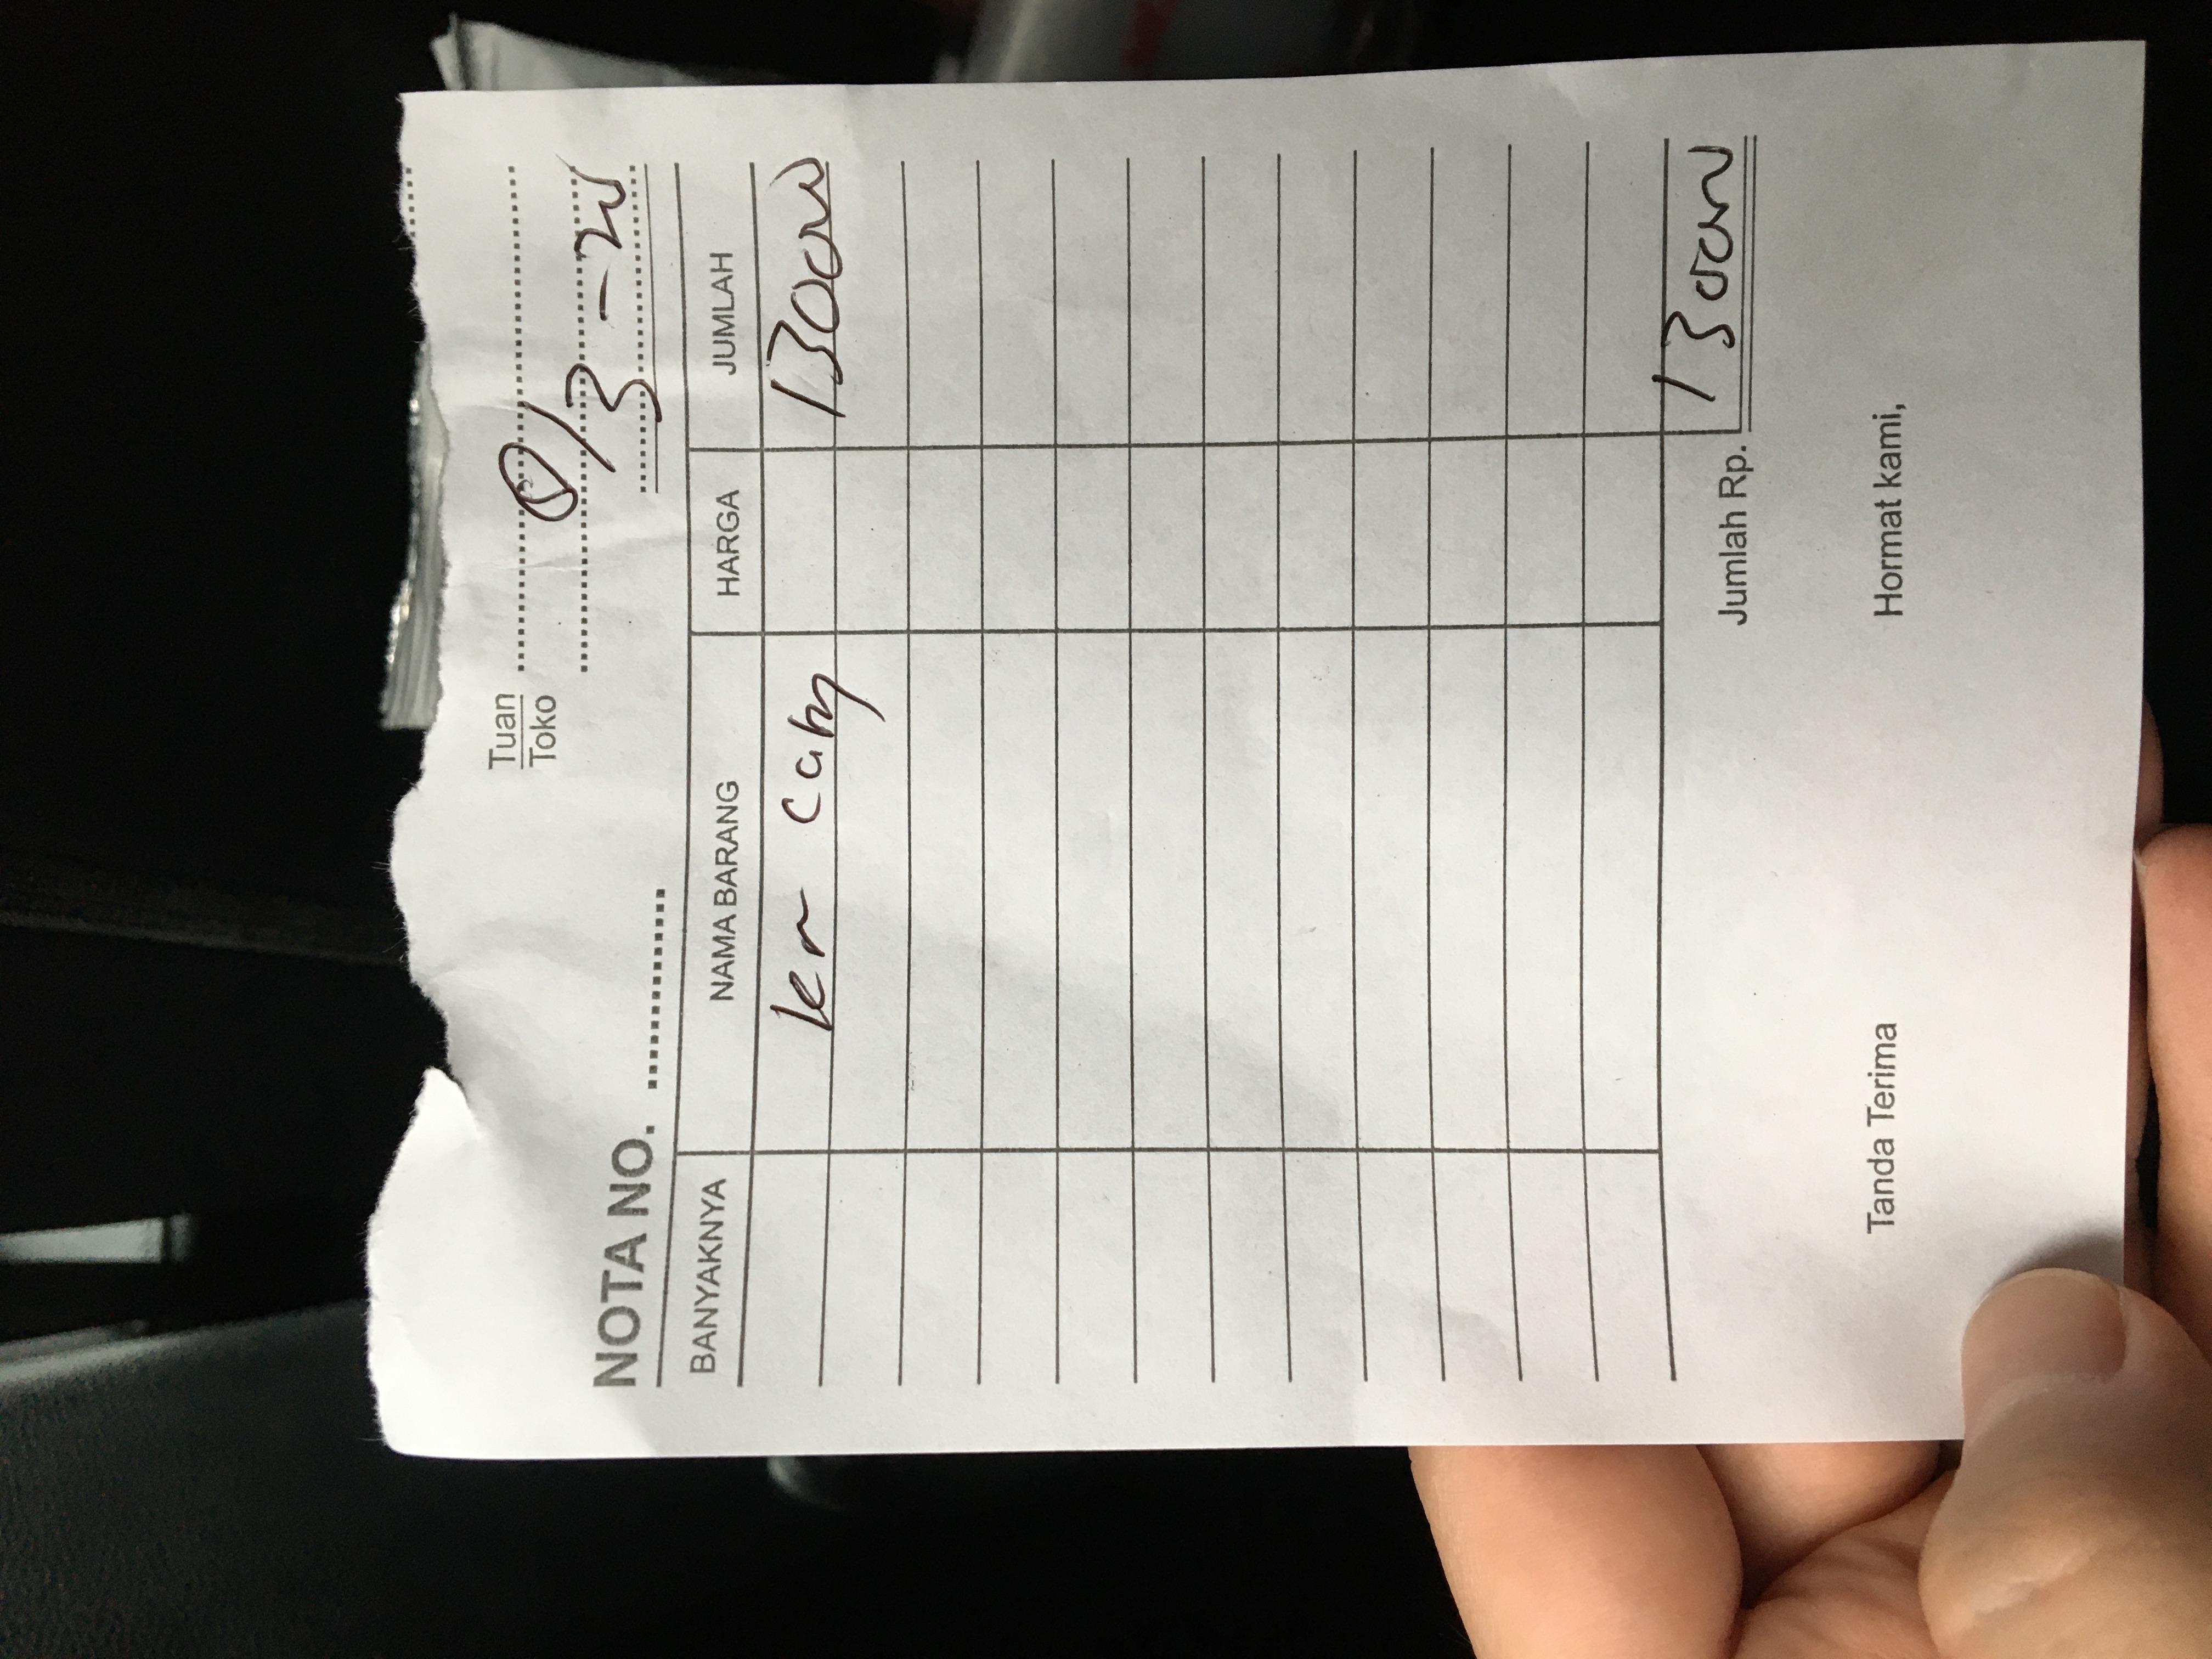 Tuan
Toko
/3 -
NOTA NO. ..............
BANYAKNYA NAMA BARANG HARGA JUMLAH
130000
Jumlah Rp. 130000
Tanda Terima Hormat kami,